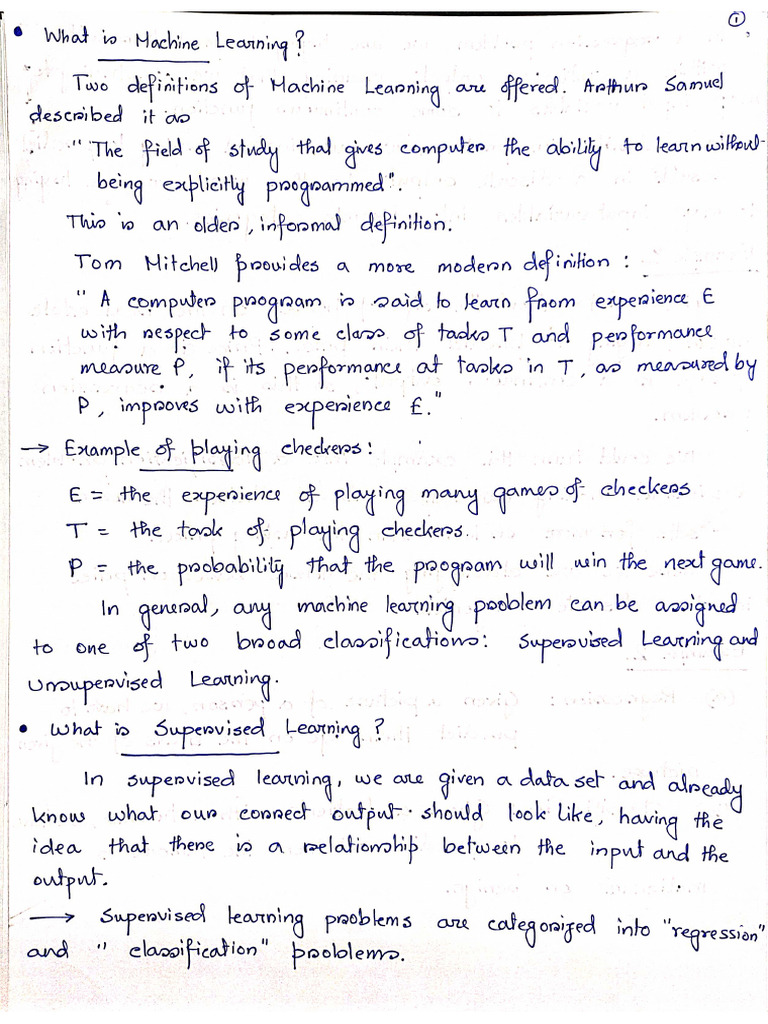 ①
• What is Machine Learning?
Two definitions of Machine Learning are offered. Arthur Samuel
described it as
"The field of study that gives computer the ability to learn without
being explicitly programmed".
This is an older, informal definition.
Tom Mitchell provides a more modern definition :
" A computer program is said to learn from experience E
with respect to some class of tasks T and performance
measure P, if its performance at tasks in T, as measured by
P, improves with experience E."
→ Example of playing checkers :
E = the experience of playing many games of checkers
T = the task of playing checkers.
P = the probability that the program will win the next game.
In general, any machine learning problem can be assigned
to one of two broad classifications: Supervised Learning and
Unsupervised Learning.
• What is Supervised Learning ?
In supervised learning, we are given a data set and already
know what our correct output should look like, having the
idea that there is a relationship between the input and the
output.
→ Supervised learning problems are categorized into "regression"
and " classification" problems.